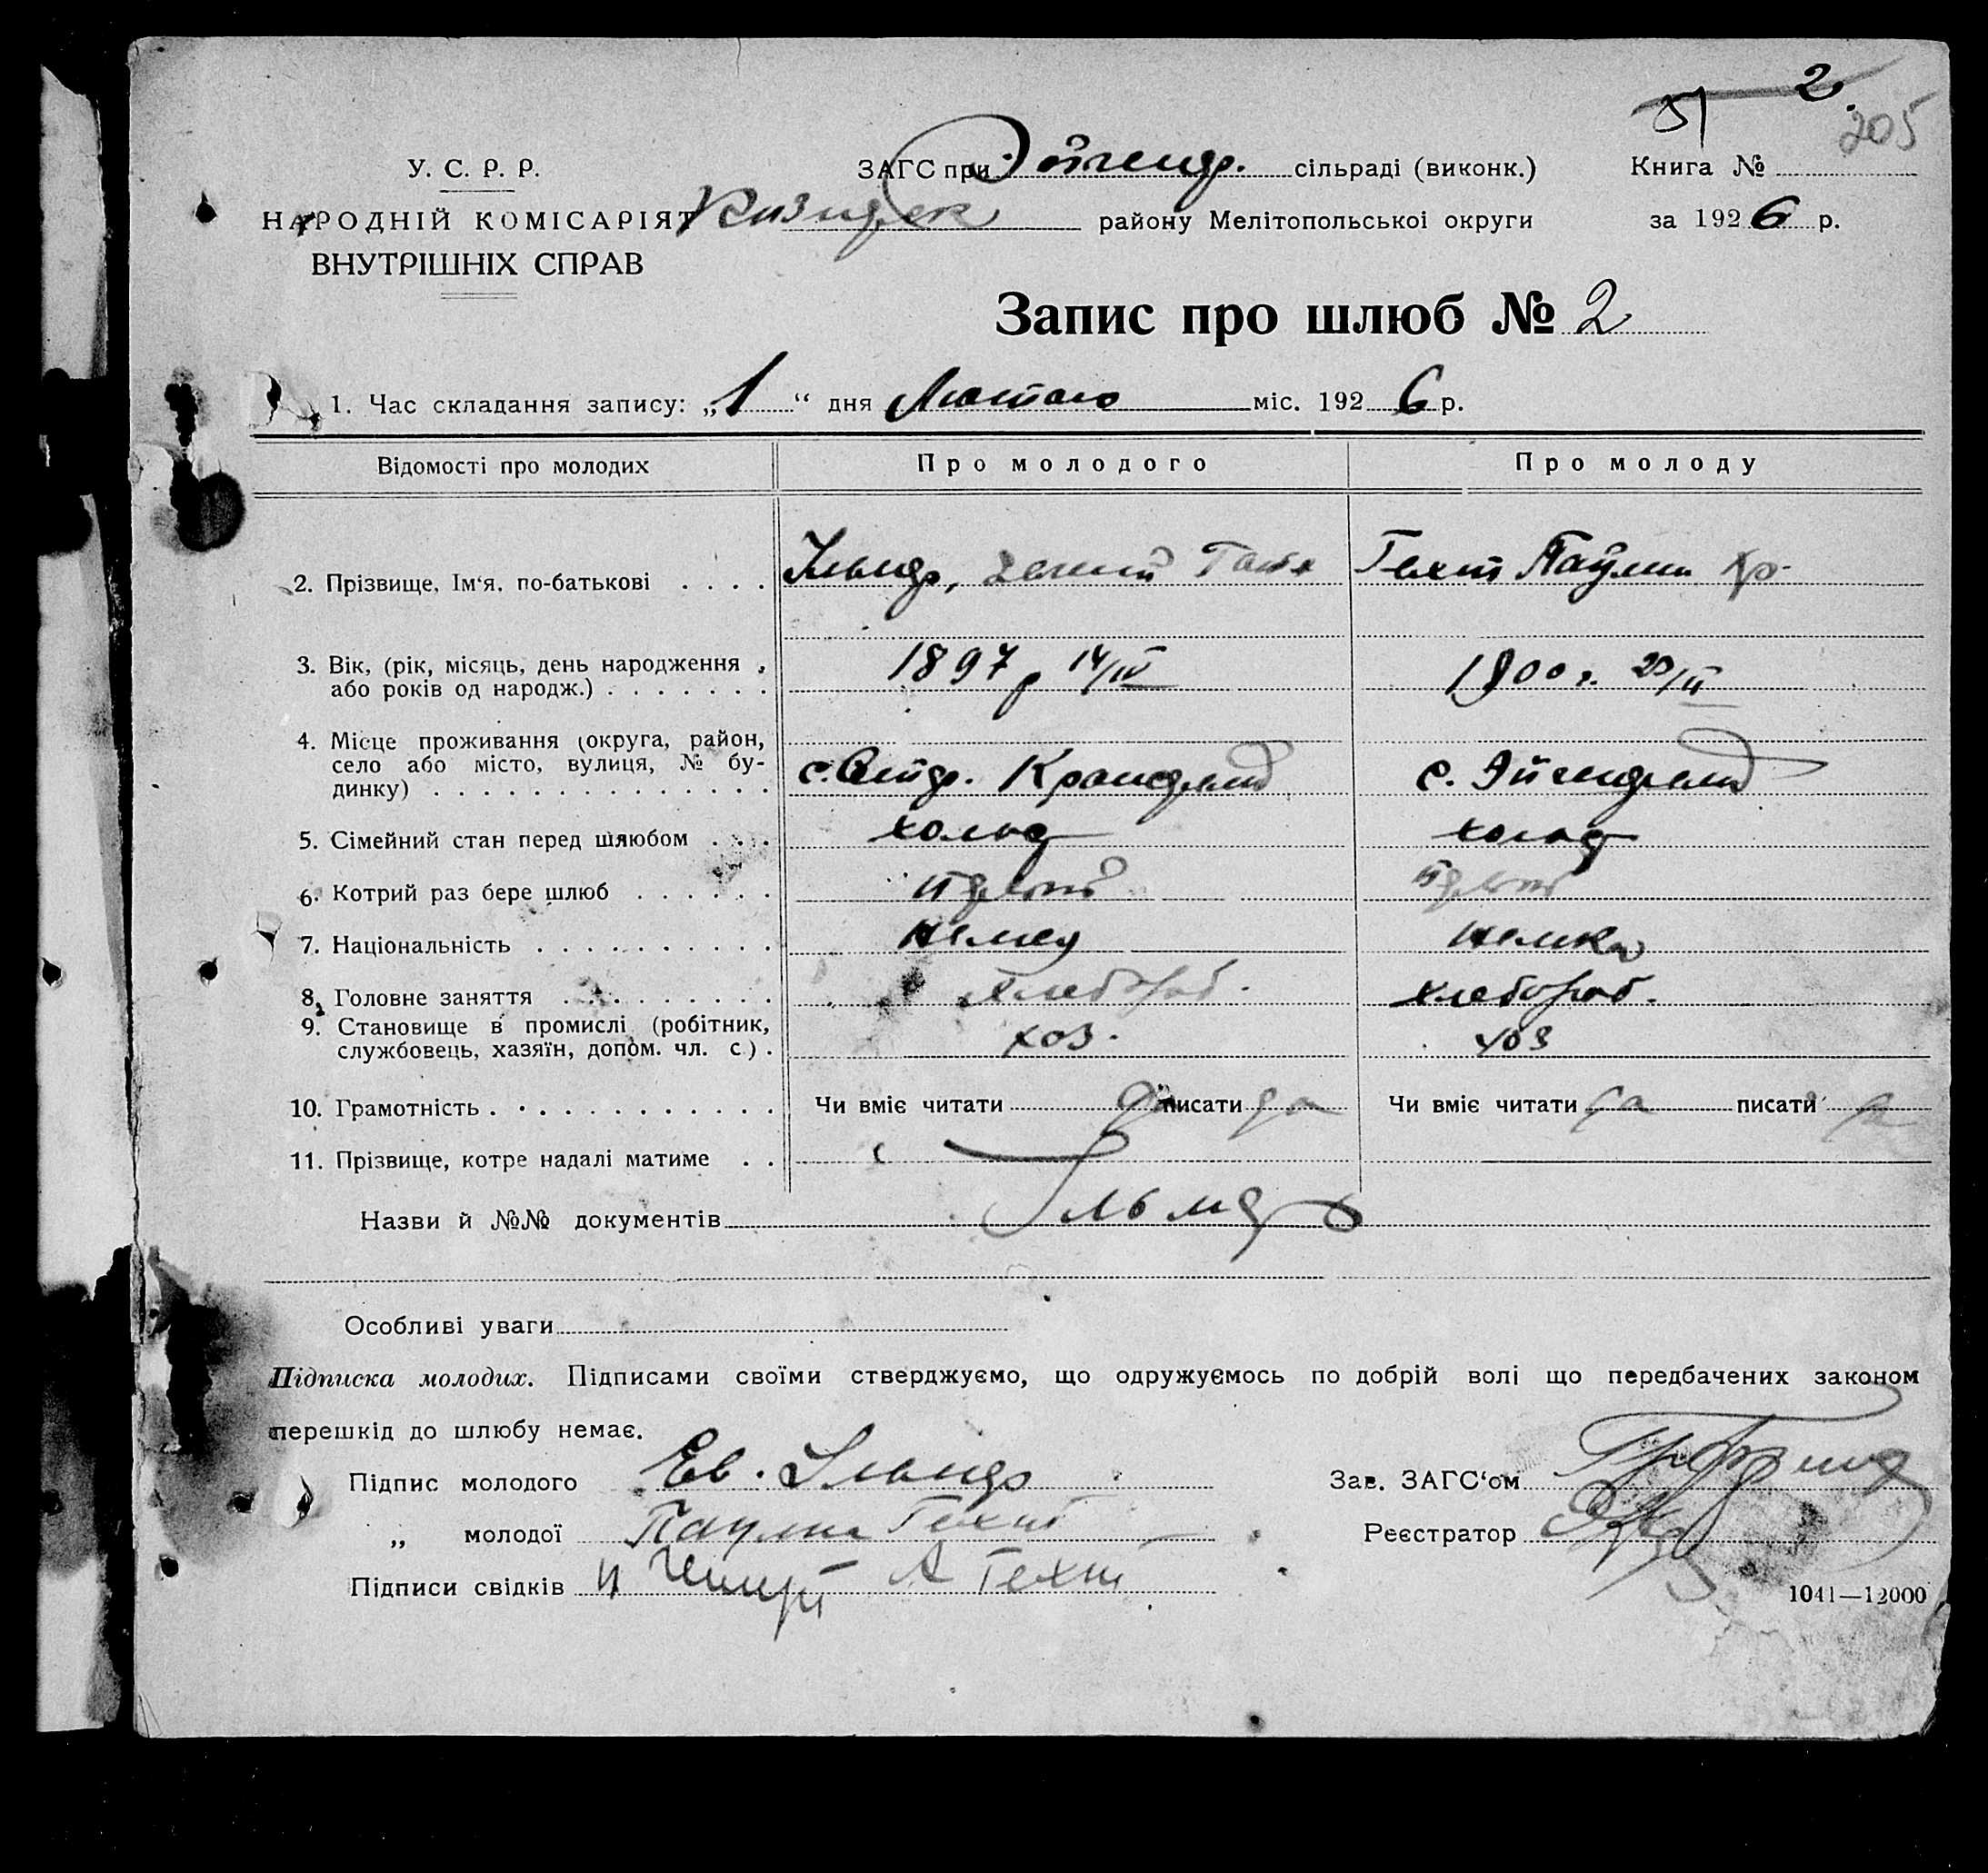 2.
51
205
У. С. Р. Р.
ЗАГС при Эйгенф. сільраді (виконк.)
Книга №
НАРОДНІЙ КОМІСАРІЯТ
району Мелітопольської округи
за 1926 р.
ВНУТРІШНІХ СПРАВ
Запис про шлюб № 2
1. Час складання запису: „1“ дня Лютого міс. 1926 р.
Відомості про молодих
Про молодого
Про молоду
2. Прізвище, Ім‘я, по-батькові . . . .
Гехт Паулин
3. Вік, (рік, місяць, день народження,
або років од народж.) . . . . . . .
1897 р 14/IV
1900 г. 20/II
4. Місце проживання (округа, район,
село або місто, вулиця, № бу-
динку) . . . . . . . . . . . . . .
с. Кронсфельд
с. Эйгенфельд
5. Сімейний стан перед шлюбом . . .
холост
холост
6. Котрий раз бере шлюб . . . . . .
первый
первый
7. Національність . . . . . . . . . .
немец
немка
8. Головне заняття . . . . . . . . .
хлебороб.
хлебороб.
9. Становище в промислі (робітник,
службовець, хазяїн, допом. чл. с.) .
хоз.
хоз
10. Грамотність . . . . . . . . . . . .
Чи вміє читати да писати да
Чи вміє читати да писати да
11. Прізвище, котре надалі матиме . .
Назви й №№ документів
Особливі уваги
Підписка молодих. Підписами своїми стверджуємо, що одружуємось по добрій волі що передбачених законом
перешкід до шлюбу немає.
Підпис молодого Ев.
Зав. ЗАГС‘ом
„ молодої Паулин Гехт
Реєстратор
Підписи свідків А Гехт
1041—12000